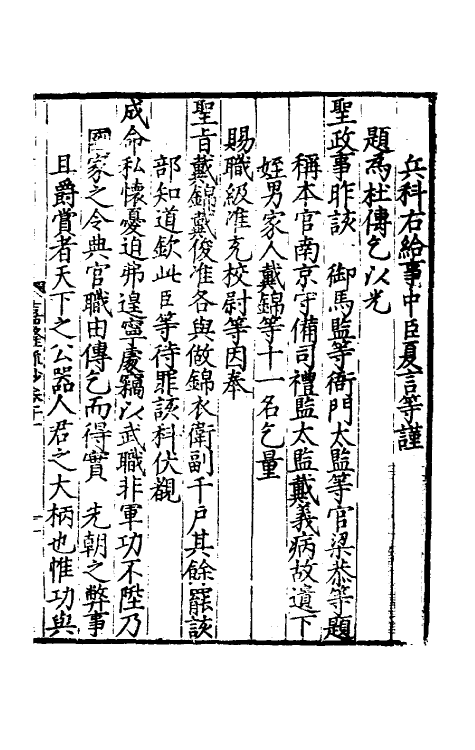 兵科右給事中臣夏言等謹
題爲杜傳乞以光
聖政事昨該 御馬監等衙門太監等官梁恭等題
稱本官南京守備司禮監太監戴義病故遺下
姪男家人戴錦等十一名乞量
賜職級准充校尉等因奉
聖旨戴錦戴俊准各與做錦衣衛副千戶其餘罷該
部知道欽此臣等待罪該科伏覩
成命私懷憂迫弗遑寧處竊以武職非軍功不陞乃
國家之令典官職由傳乞而得實 先朝之弊事
且爵賞者天下之公器人君之大柄也惟功與
嘉隆疏抄卷十一